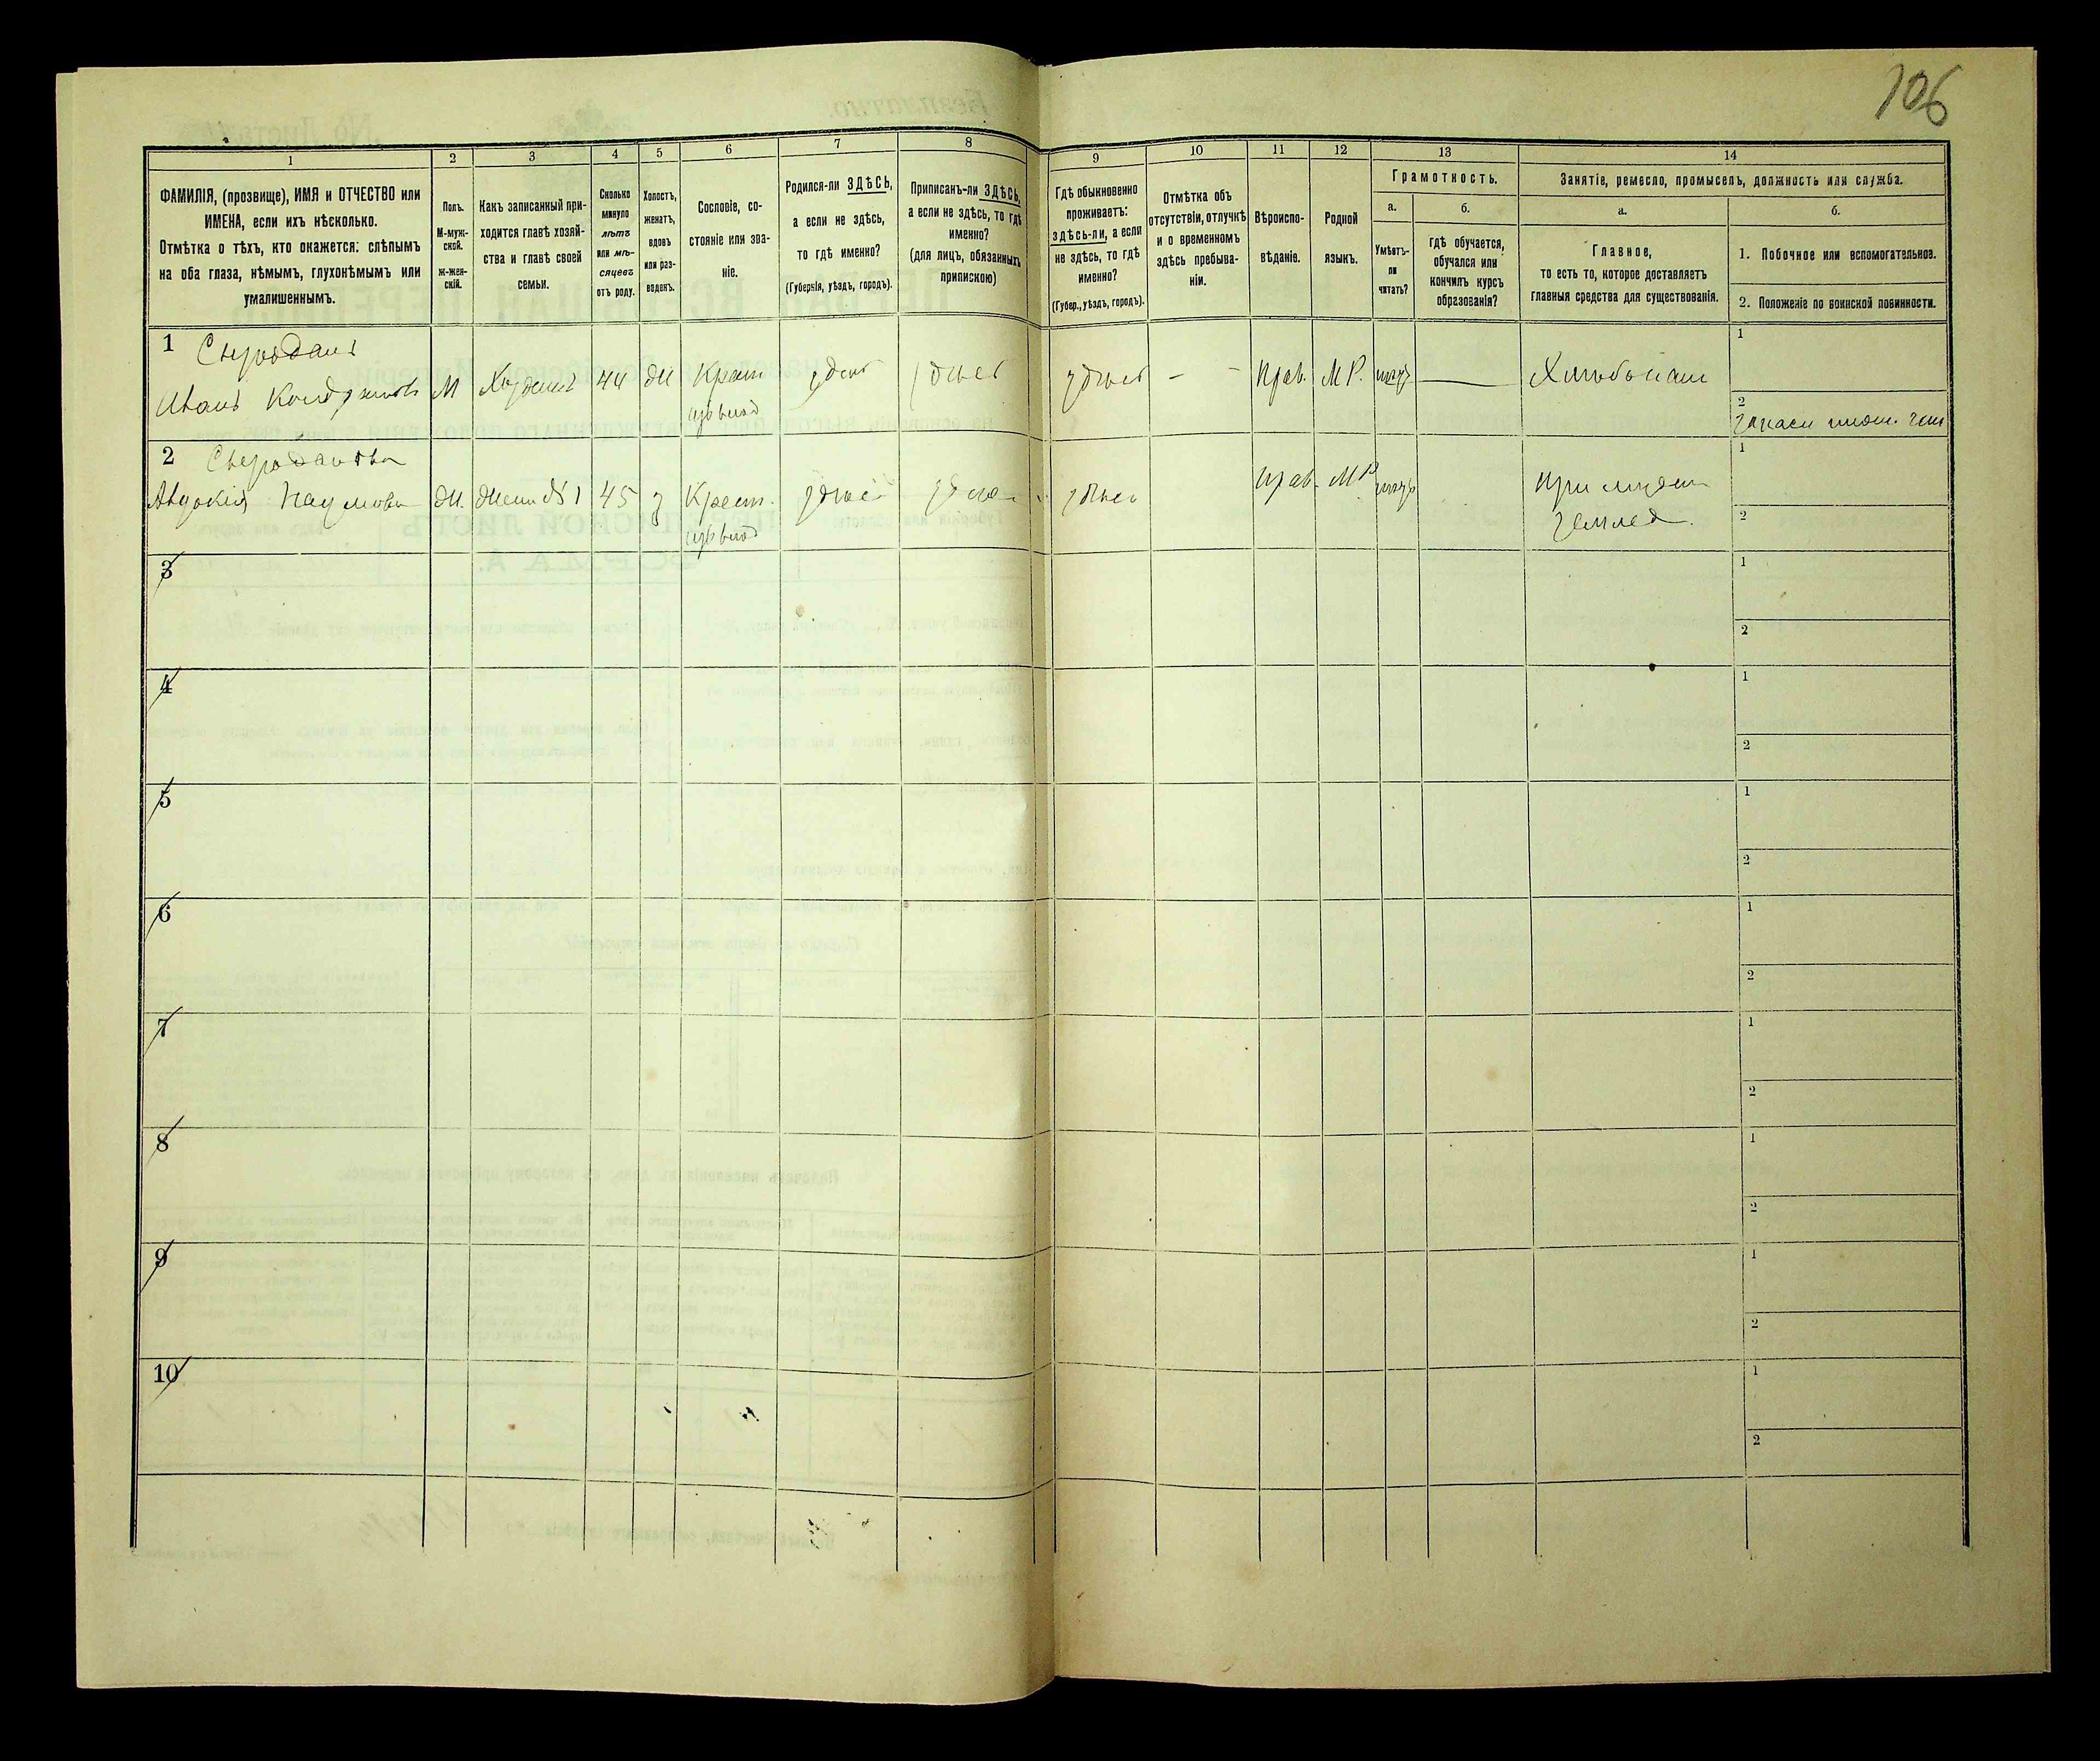 106
1
2
3
4
5
6
7
8
9
10
11
12
13
14
ФАМИЛІЯ, (прозвище), ИМЯ и ОТЧЕСТВО или
ИМЕНА, если ихъ нѣсколько.
Отмѣтка о тѣхъ, кто окажется: слѣпымъ
на оба глаза, нѣмымъ, глухонѣмымъ или
умалишеннымъ.
Полъ.
М-муж-
ской.
ж-жен-
скій.
Какъ записанный при-
ходится главѣ хозяй-
ства и главѣ своей
семьи.
Сколько
минуло
лѣтъ
или мѣ-
сяцевъ
отъ роду.
Холостъ,
женатъ,
вдовъ
или раз-
веденъ.
Сословіе, со-
стояніе или зва-
ніе.
Родился-ли ЗДѢСЬ,
а если не здѣсь,
то гдѣ именно?
(Губернія, уѣздъ, городъ).
Приписанъ-ли ЗДѢСЬ,
а если не здѣсь, то гдѣ
именно?
(для лицъ, обязанныхъ
припискою)
Гдѣ обыкновенно
проживаетъ:
здѣсь-ли, а если
не здѣсь, то гдѣ
именно?
(Губер., уѣздъ, городъ).
Отмѣтка объ
отсутствіи, отлучкѣ
и о временномъ
здѣсь пребыва-
ніи.
Вѣроиспо-
вѣданіе.
Родной
языкъ.
Грамотность.
а.
Умѣетъ-
ли
читать?
б.
гдѣ обучается,
обучался или
кончилъ курсъ
образованія?
Занятіе, ремесло, промыселъ, должность или служба.
а.
Главное,
то есть то, которое доставляетъ
главныя средства для существованія.
б.
1. Побочное или вспомогательное.
2. Положеніе по воинской повинности.
1
Иванъ
М
44
Крест
здѣсь
здѣсь
здѣсь
— —
Прав.
М Р.
1
2
2
Авдокія Наумова
Ж.
Жена № 1
45
Крест.
здѣсь
здѣсь
здѣсь
Прав.
М Р
при мужѣ
землед.
1
2
3
1
2
4
1
2
5
1
2
6
1
2
7
1
2
8
1
2
9
1
2
10
1
2